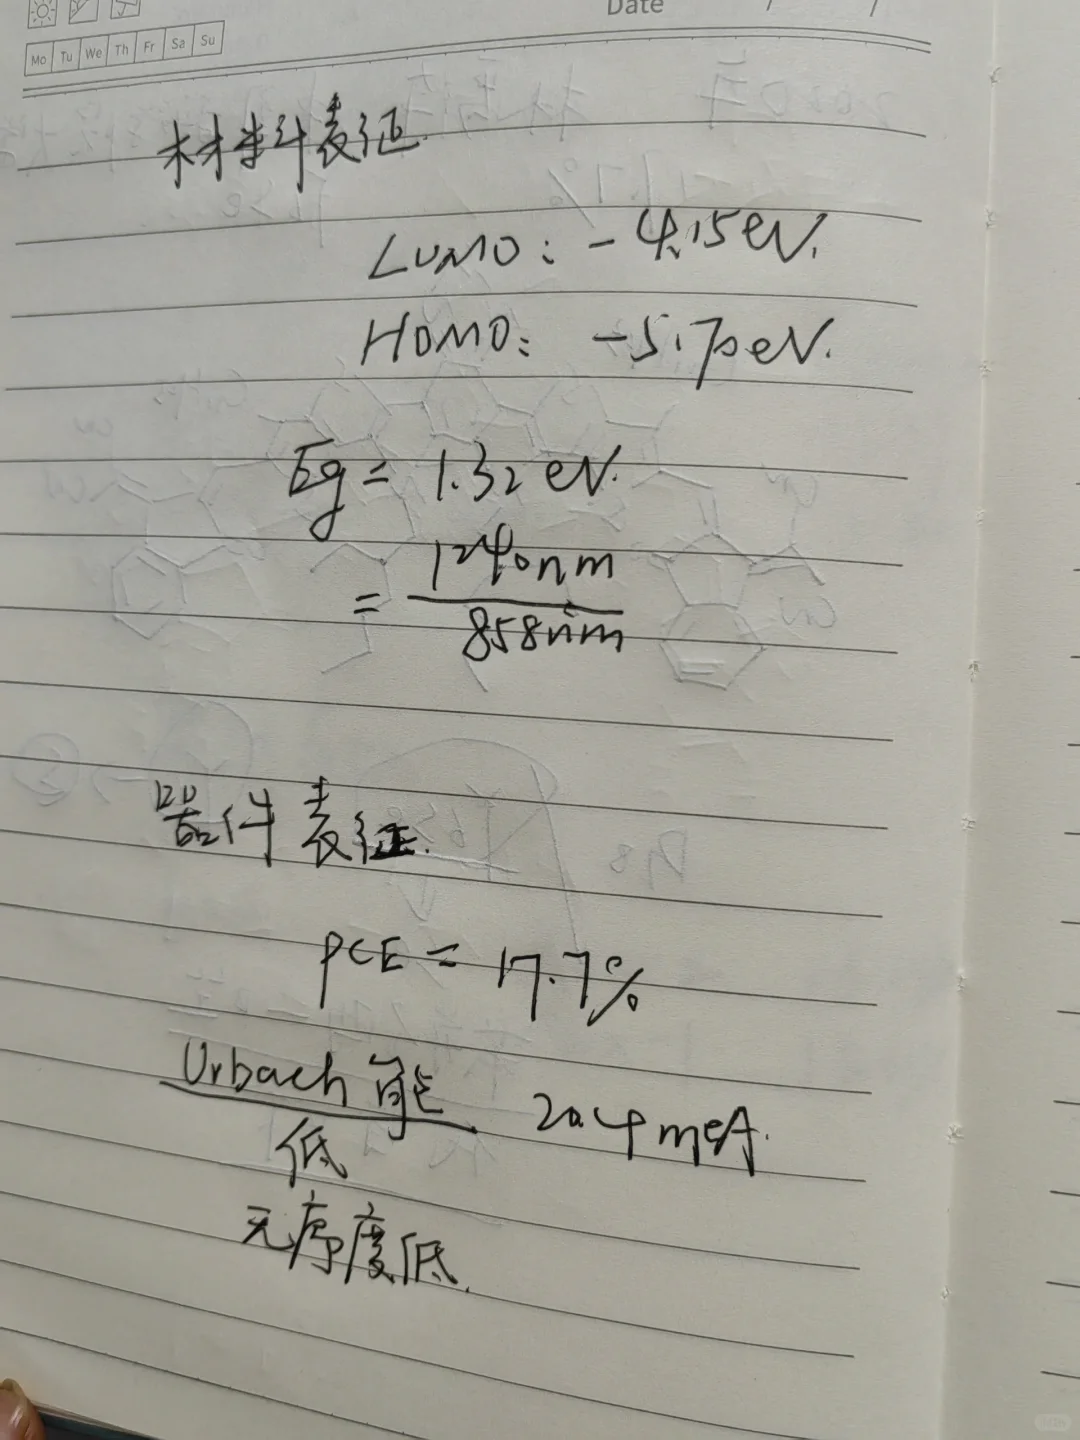 Date / /
Mo Tu We Th Fr Sa Su
材料表征.
LUMO: -4.15eV.
HOMO: -5.70eV.
Eg = 1.32 eV.
= 1240nm
858nm
器件表征.
PCE = 17.7%
Urbach 能 20.4 meA.
低
无序度低.